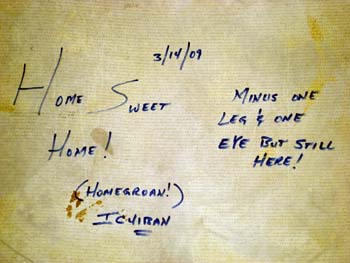 3/14/09
Home Sweet
Home!
(Homegroan!)
Ichiban
Minus one
Leg & one
Eye But Still
Here!